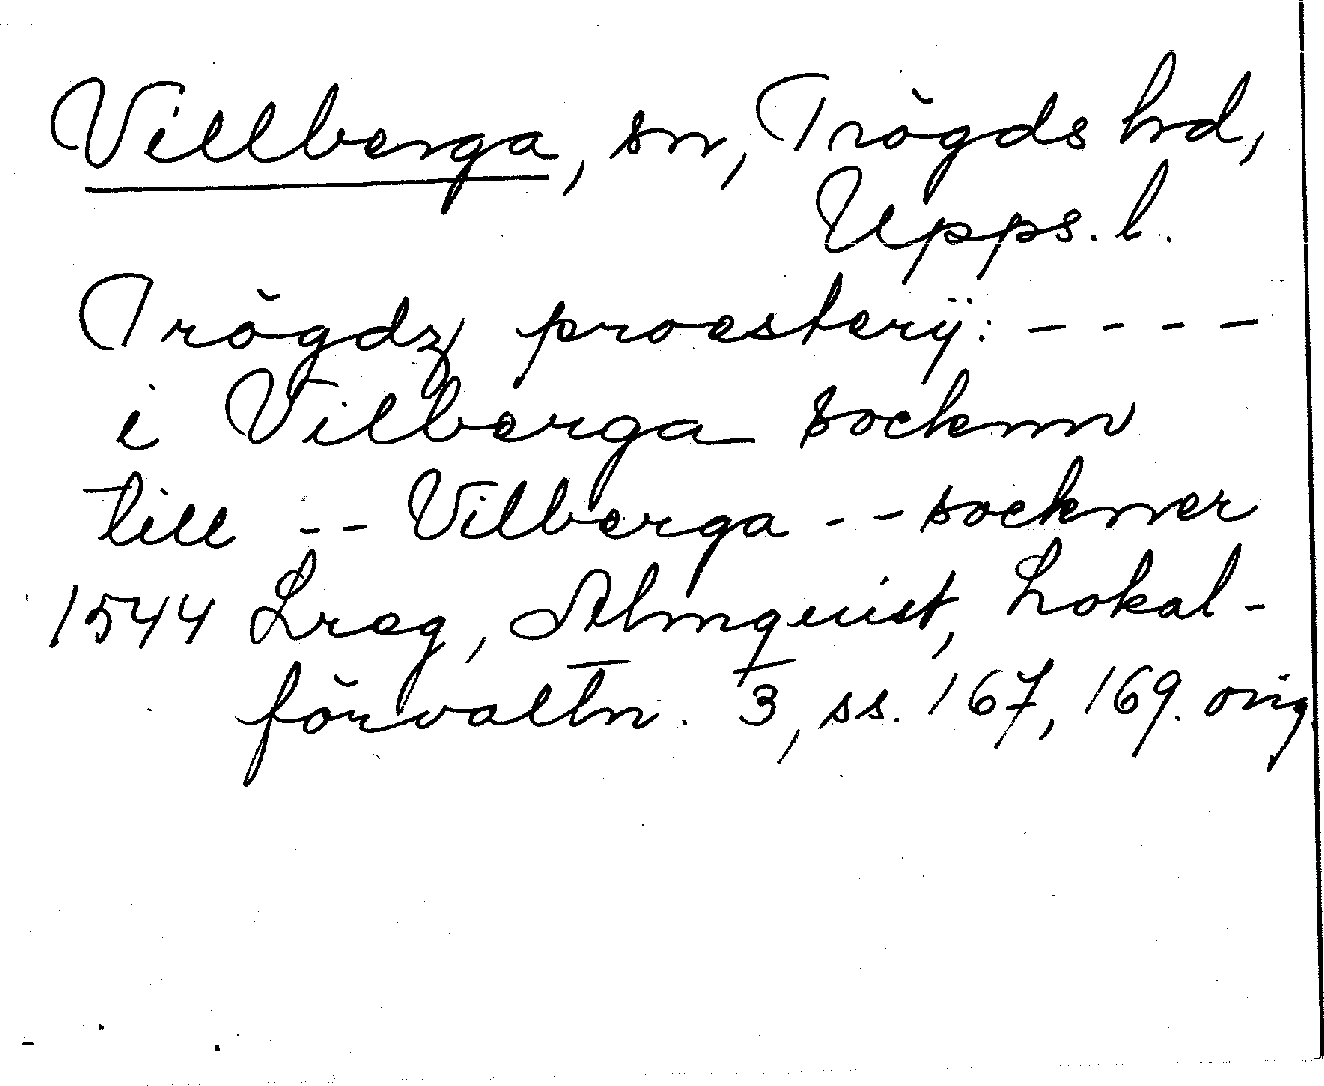 Villberga, sn, Trögds hd,
Upps. l.
Trögdz proesterÿ: - - - -
i Vilberga socknn
till - - Vilberga - - sockner
1544 Lreg, Almquist, Lokal-
förvaltn. 3, ss. 167, 169. orig.